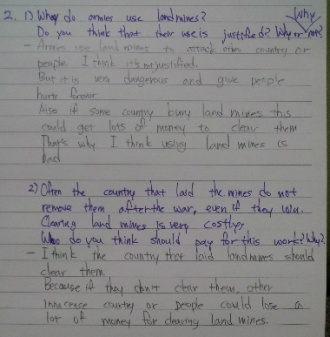 2. 1) Why do armies use landmines?
Do you think that their use is justified? Why or not?
Why
- Armies use land mines to attack other country or
people. I think it's not justified.
But it is very dangerous and give people
hurts forever
Also if some country bury land mines this
could get lots of money to clear them
That's why I think using land mines is
bad
2) Often the country that laid the mines do not
remove them after the war, even if they win.
Clearing land mines is very costly,
Who do you think should pay for this work? Why?
- I think the country that laid landmines should
clear them
Because if they don't clear them, other
innocence country or people could lose a
lot of money for clearing land mines.